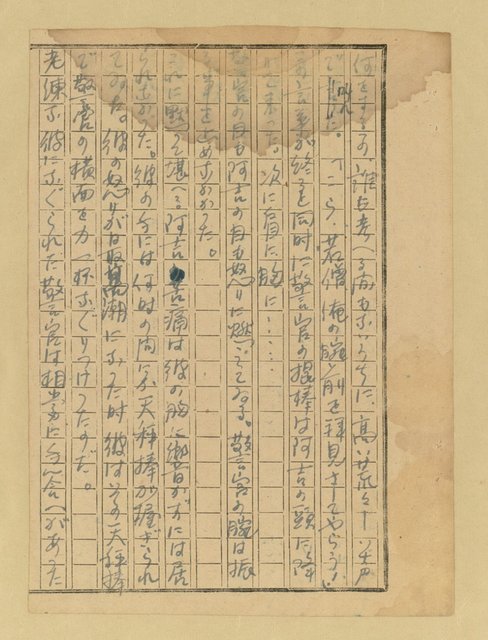 何をするのか誰も考へる間もないうちに、高い荒々しい声
で叫んだ。「こら、若僧、俺の腕前を拝見さしてやらう」
の言葉が終ると同時に警官の棍棒は阿吉の頭に降
って来った。次に肩に、胸に……
警官の目も阿吉の目も怒りに燃えてゐる。警官の腕は振
を止めなかった。
それに黙って堪へる阿吉、苦痛は彼の胸に響かずには居
られなかった。彼の手には何時の間にか天秤棒が握られ
てゐた。彼の怒りが最高潮になった時彼はその天秤棒
で警官の横面を力一杯なぐりつけたのだ。
老練な彼になぐられた警官は相当に手合へがあった